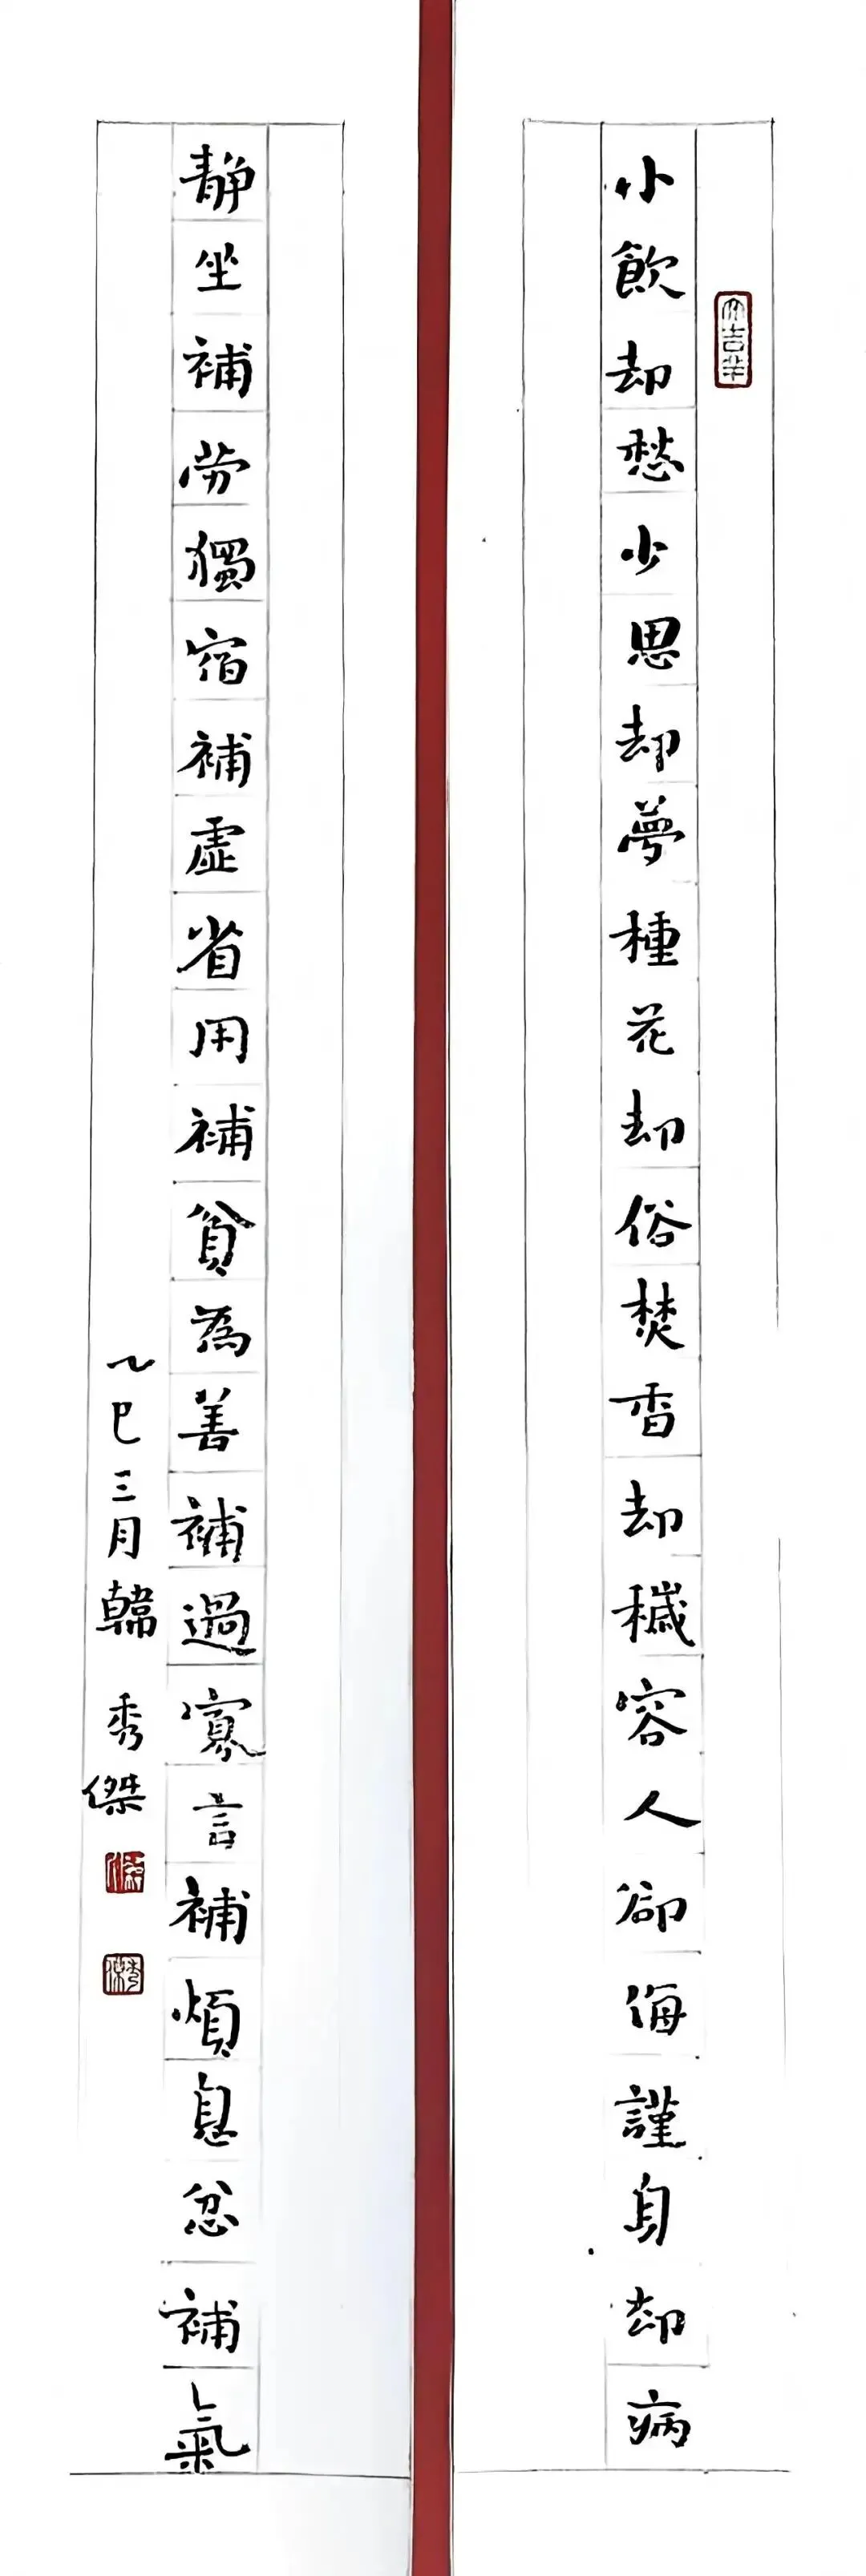 小飲却愁少思却夢種花却俗焚香却穢容人卻侮謹身却病
静坐補勞獨宿補虛省用補貧為善補過寡言補煩息忿補氣
乙巳三月韓秀傑
大吉羊